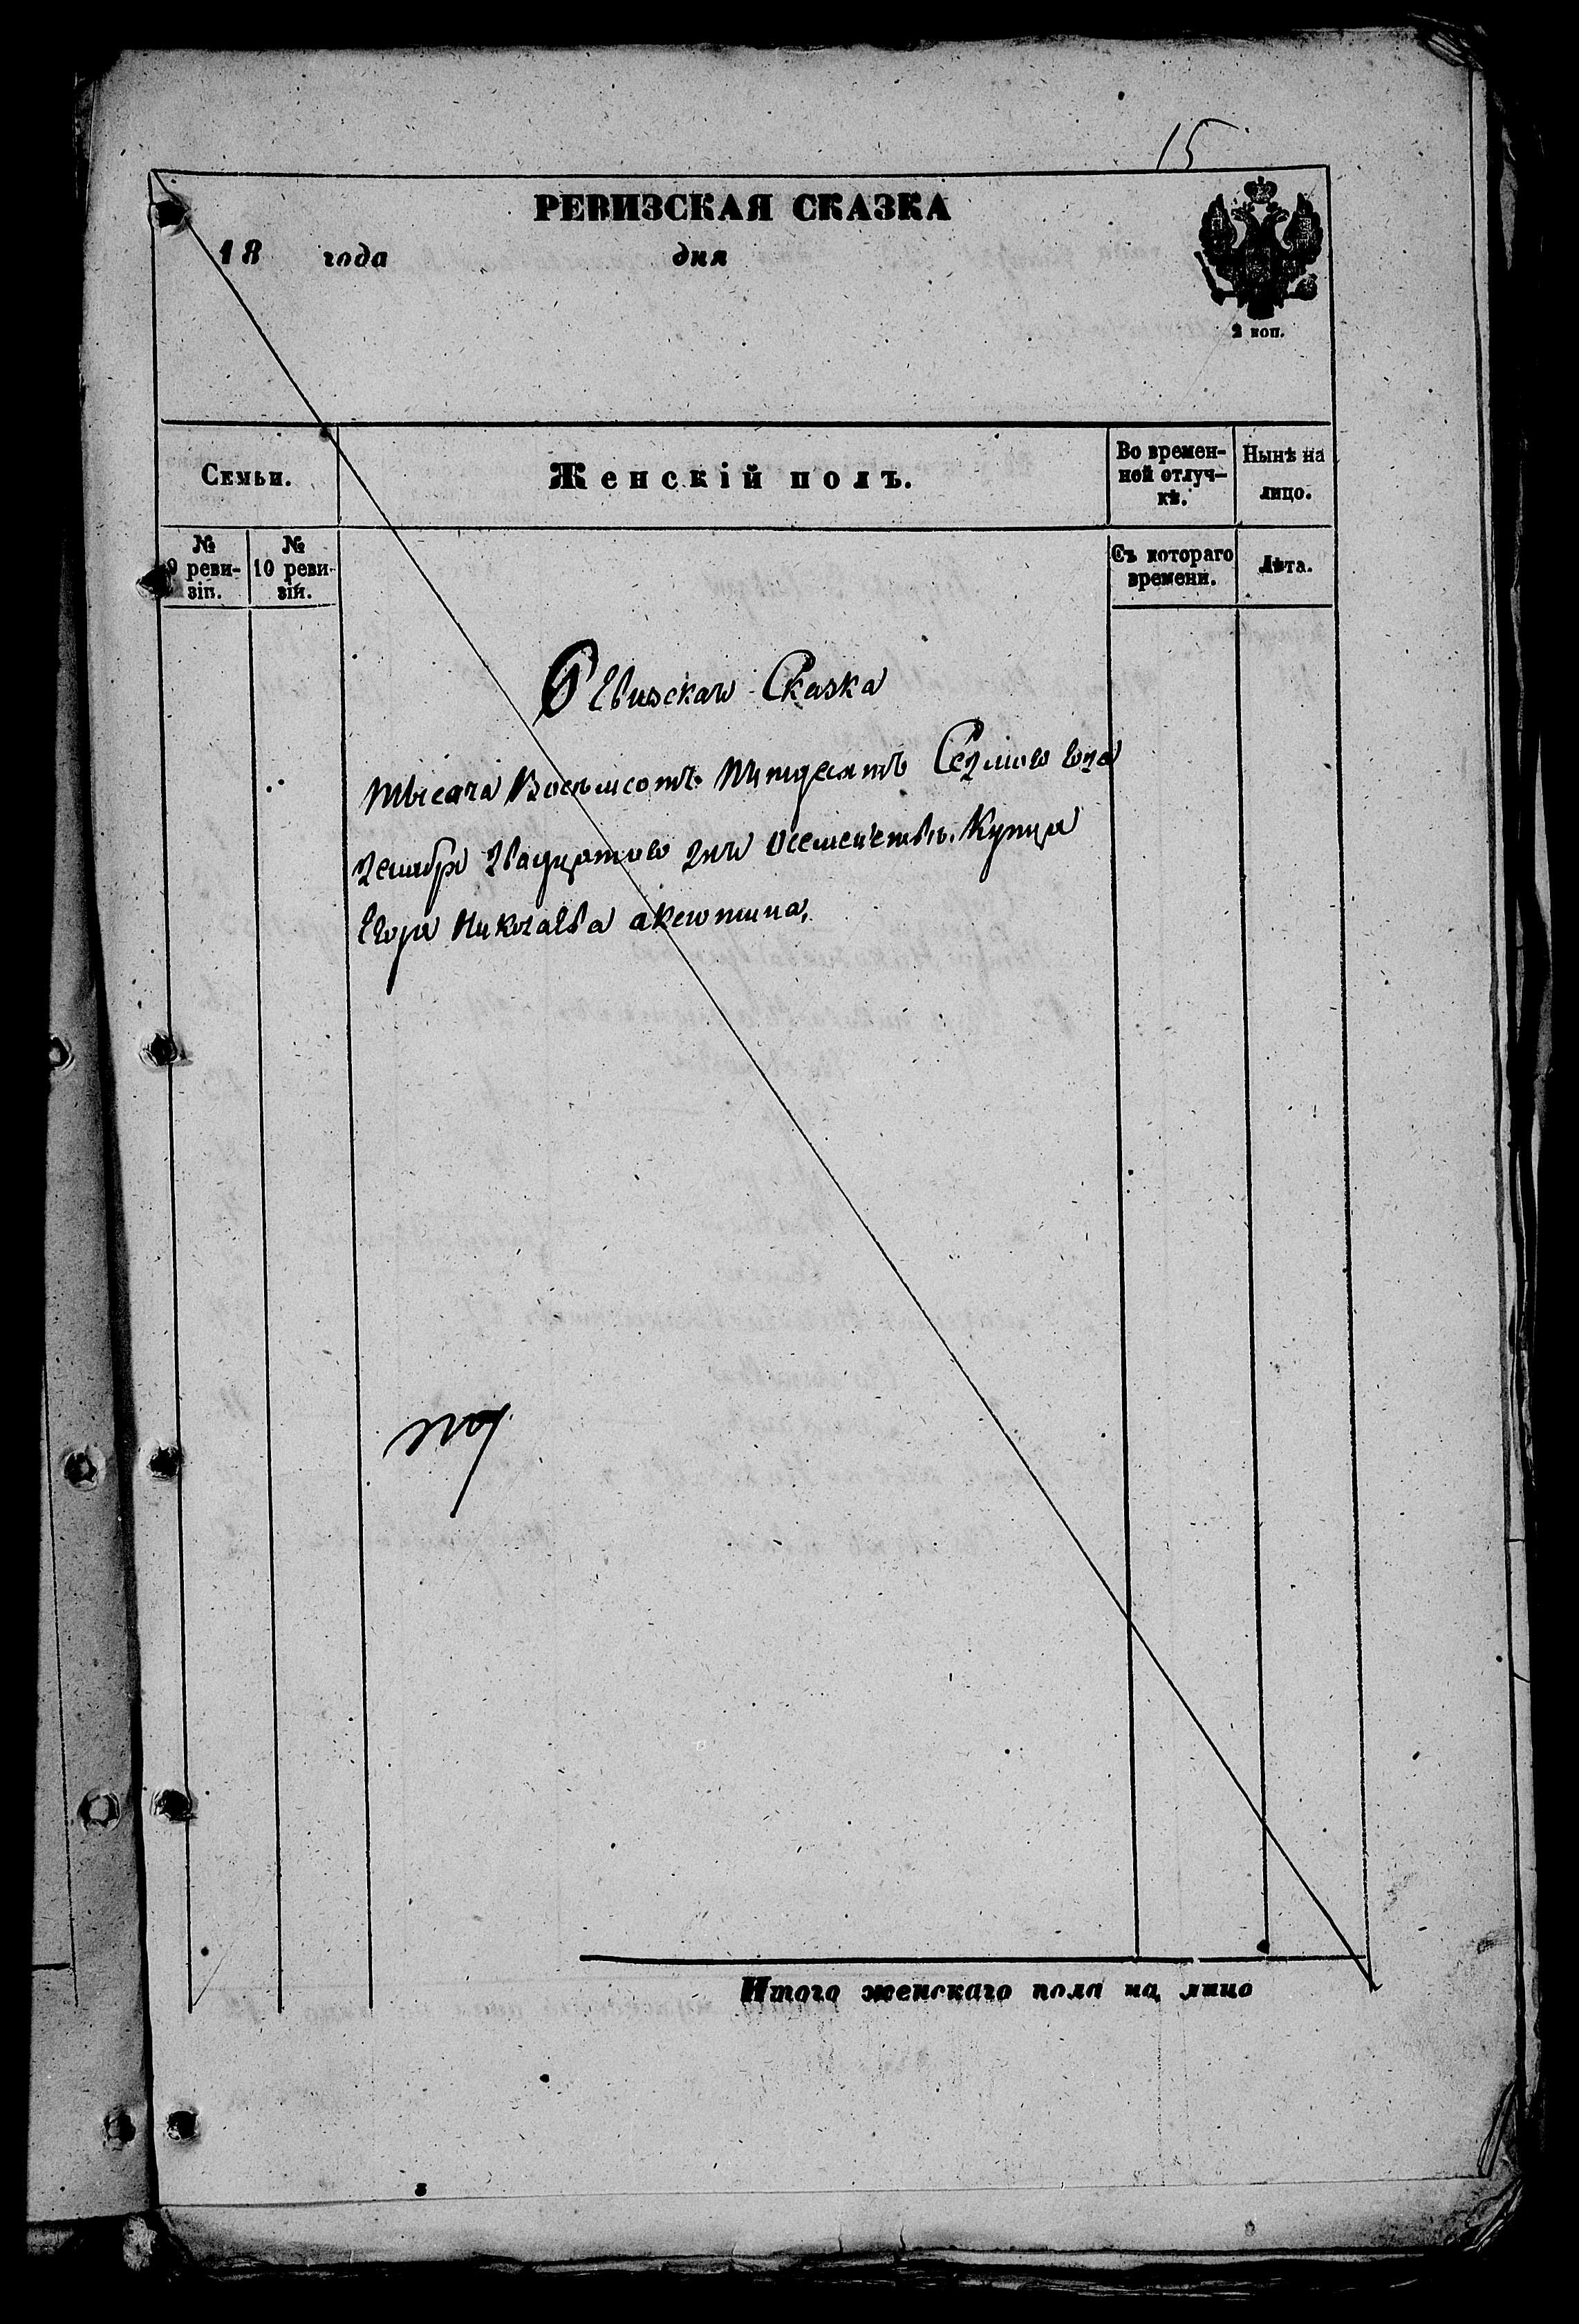 15
РЕВИЗСКАЯ СКАЗКА
18 года дня
2 коп.
Семьи.
Женскій полъ.
Во времен-
ной отлуч-
кѣ.
Нынѣ на
лицо.
№
9 реви-
зіи.
№
10 реви-
зіи.
Съ котораго
времени.
Лѣта.
Ревизская Сказка
тысяча Восемсотъ пятдесятъ Седмого года
декабря двадцатого дня о семействѣ Купца
Егора Николаева аксютина,
Итого женскаго пола на лицо